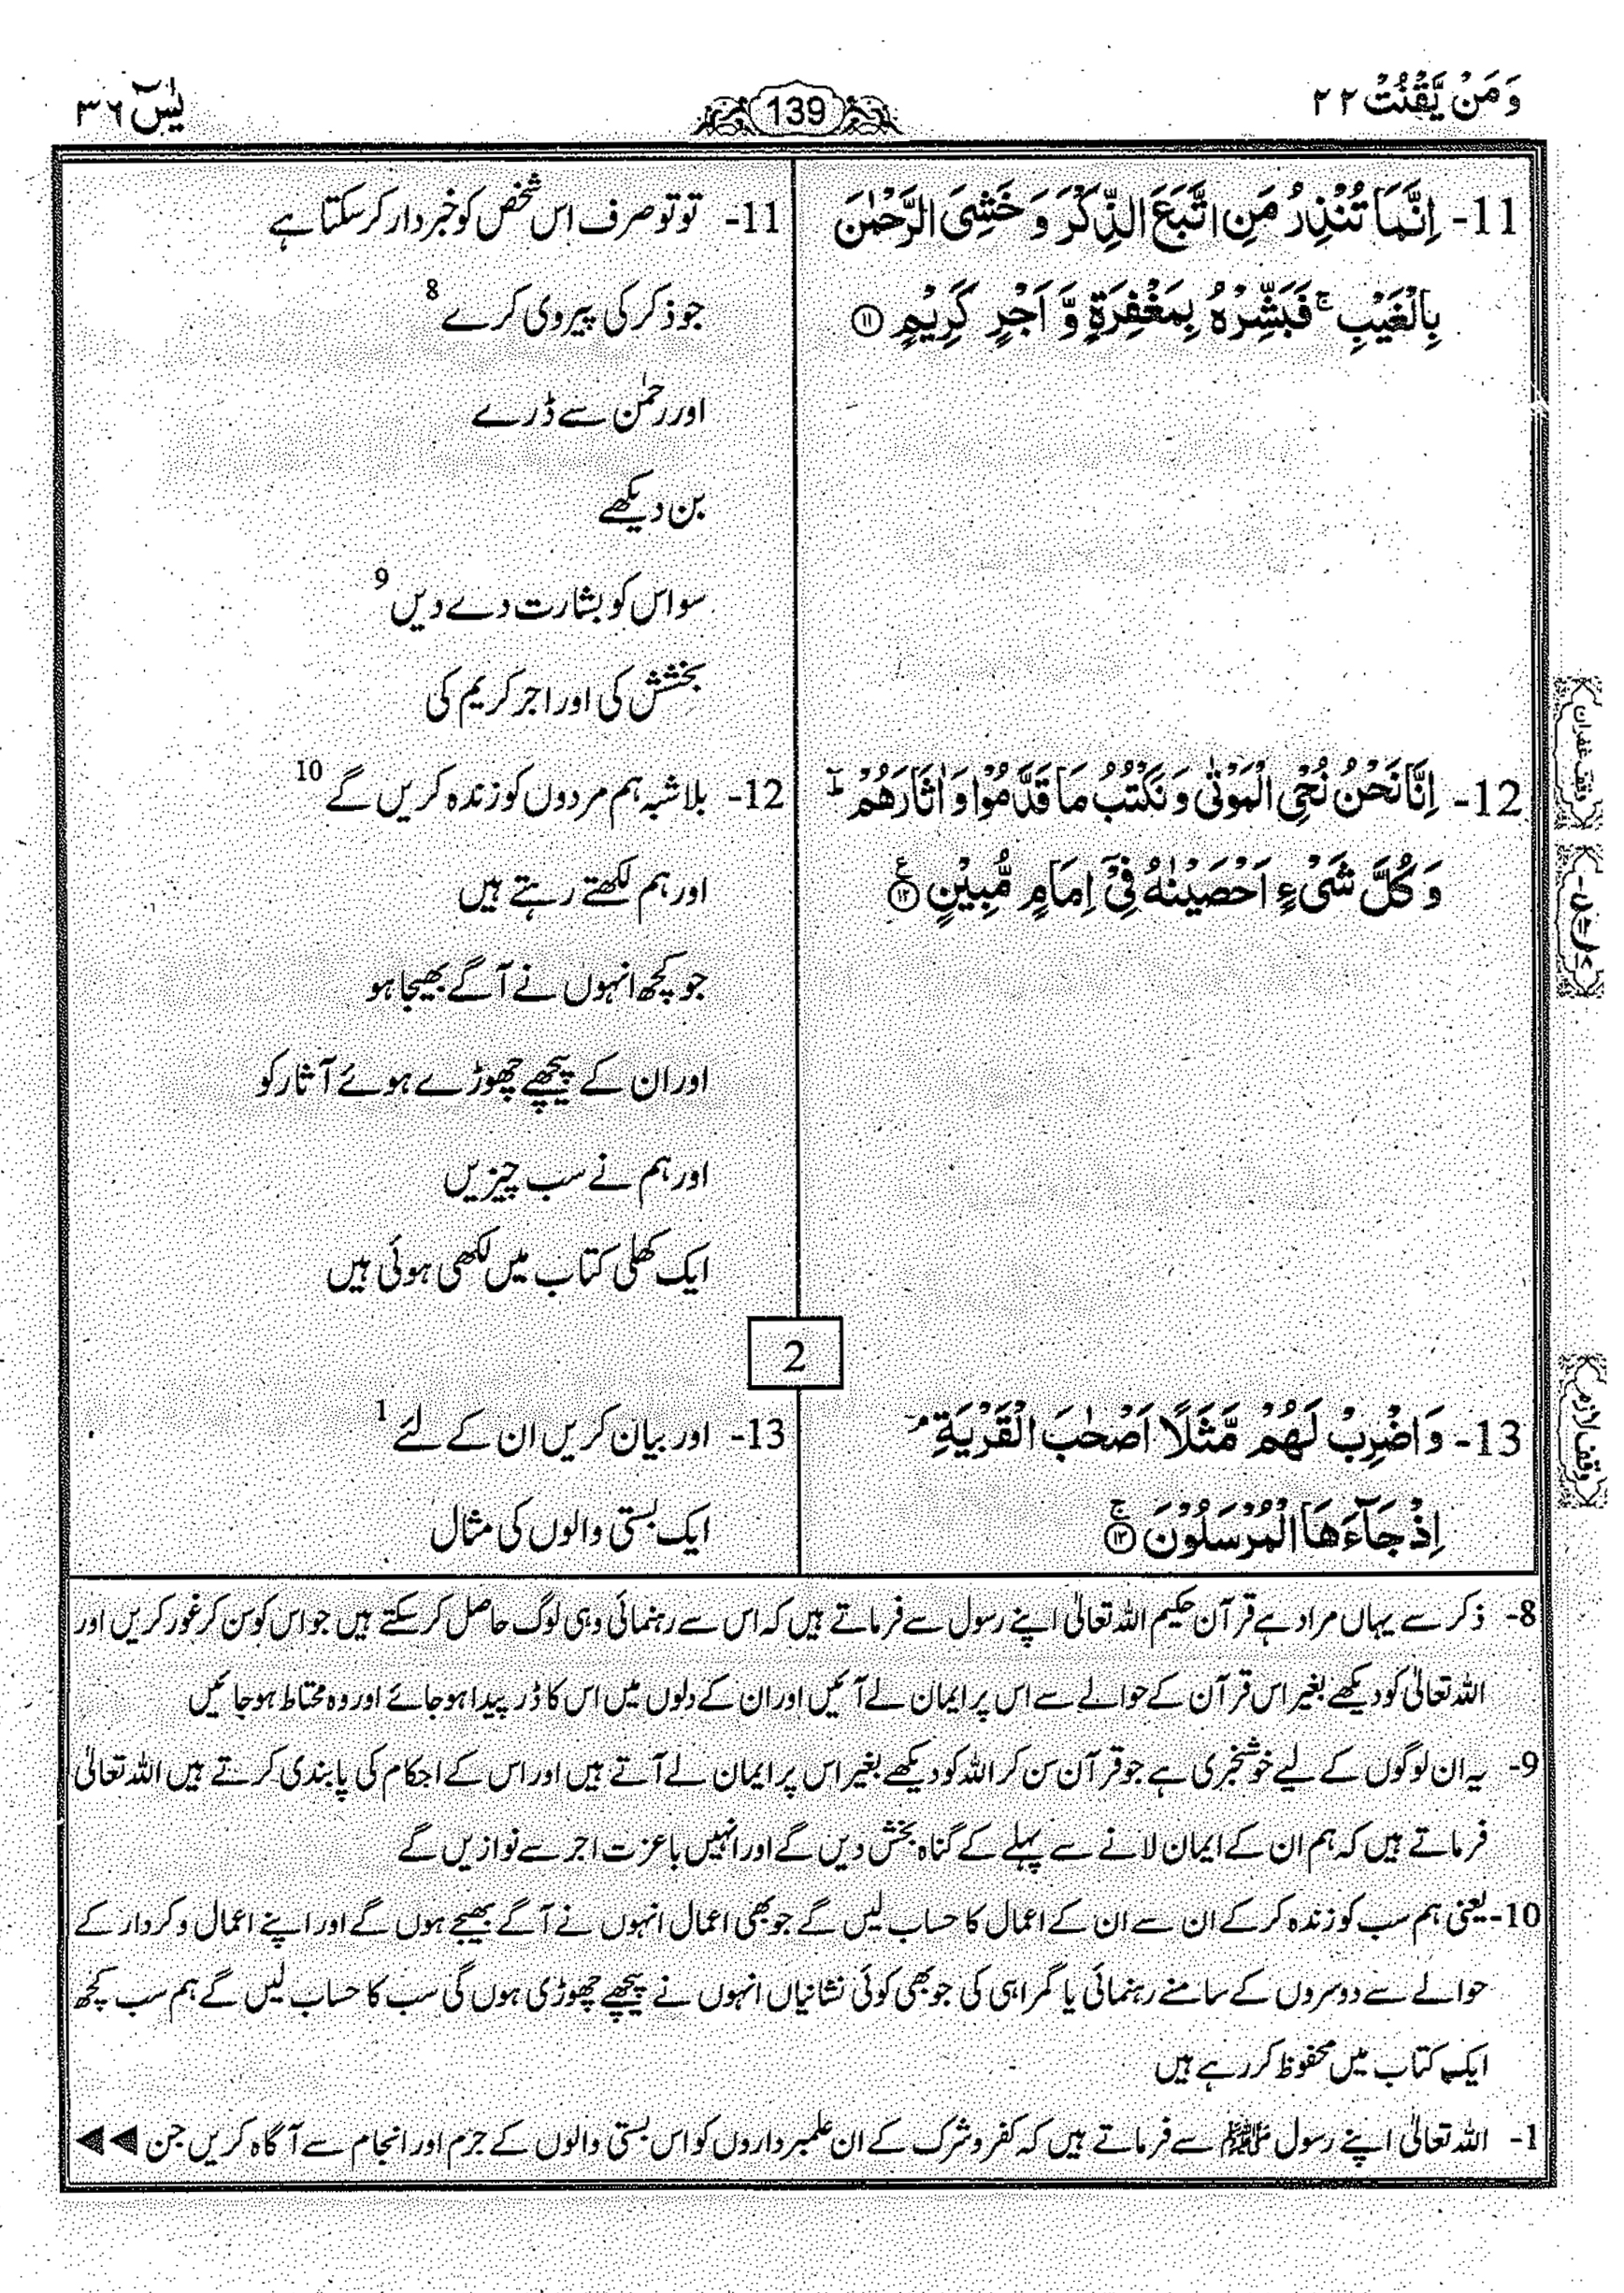 وَمَنْ يَّقْنُتْ ۲۲
139
يٰسٓ ۳۶
11- اِنَّمَا تُنْذِرُ مَنِ اتَّبَعَ الذِّكْرَ وَ خَشِیَ الرَّحْمٰنَ
بِالْغَيْبِ ۚ فَبَشِّرْهُ بِمَغْفِرَةٍ وَّ اَجْرٍ كَرِيْمٍ ⑪
11- تو تو صرف اس شخص کو خبردار کر سکتا ہے
جو ذکر کی پیروی کرے 8
اور رحمٰن سے ڈرے
بن دیکھے
سو اس کو بشارت دے دیں 9
بخشش کی اور اجر کریم کی
12- اِنَّا نَحْنُ نُحْیِ الْمَوْتٰی وَ نَكْتُبُ مَا قَدَّمُوْا وَ اٰثَارَهُمْ ؕ
وَ كُلَّ شَیْءٍ اَحْصَيْنٰهُ فِیْۤ اِمَامٍ مُّبِيْنٍ ⑫ ع
12- بلاشبہ ہم مردوں کو زندہ کریں گے 10
اور ہم لکھتے رہتے ہیں
جو کچھ انہوں نے آگے بھیجا ہو
اور ان کے پیچھے چھوڑے ہوئے آثار کو
اور ہم نے سب چیزیں
ایک کھلی کتاب میں لکھی ہوئی ہیں
وقف غفران
2
13- وَ اضْرِبْ لَهُمْ مَّثَلًا اَصْحٰبَ الْقَرْيَةِ ۘ
اِذْ جَآءَهَا الْمُرْسَلُوْنَ ⑬ ۚ
13- اور بیان کریں ان کے لئے 1
ایک بستی والوں کی مثال
وقف لازم
8- ذکر سے یہاں مراد ہے قرآن حکیم اللہ تعالیٰ اپنے رسول سے فرماتے ہیں کہ اس سے رہنمائی وہی لوگ حاصل کر سکتے ہیں جو اس کو سن کر غور کریں اور
اللہ تعالیٰ کو دیکھے بغیر اس قرآن کے حوالے سے اس پر ایمان لے آئیں اور ان کے دلوں میں اس کا ڈر پیدا ہو جائے اور وہ محتاط ہو جائیں
9- یہ ان لوگوں کے لیے خوشخبری ہے جو قرآن سن کر اللہ کو دیکھے بغیر اس پر ایمان لے آتے ہیں اور اس کے احکام کی پابندی کرتے ہیں اللہ تعالیٰ
فرماتے ہیں کہ ہم ان کے ایمان لانے سے پہلے کے گناہ بخش دیں گے اور انہیں باعزت اجر سے نوازیں گے
10- یعنی ہم سب کو زندہ کر کے ان سے ان کے اعمال کا حساب لیں گے جو بھی اعمال انہوں نے آگے بھیجے ہوں گے اور اپنے اعمال و کردار کے
حوالے سے دوسروں کے سامنے رہنمائی یا گمراہی کی جو بھی کوئی نشانیاں انہوں نے پیچھے چھوڑی ہوں گی سب کا حساب لیں گے ہم سب کچھ
ایک کتاب میں محفوظ کر رہے ہیں
1- اللہ تعالیٰ اپنے رسول ﷺ سے فرماتے ہیں کہ کفر و شرک کے ان علمبرداروں کو اس بستی والوں کے جرم اور انجام سے آگاہ کریں جن ◀◀